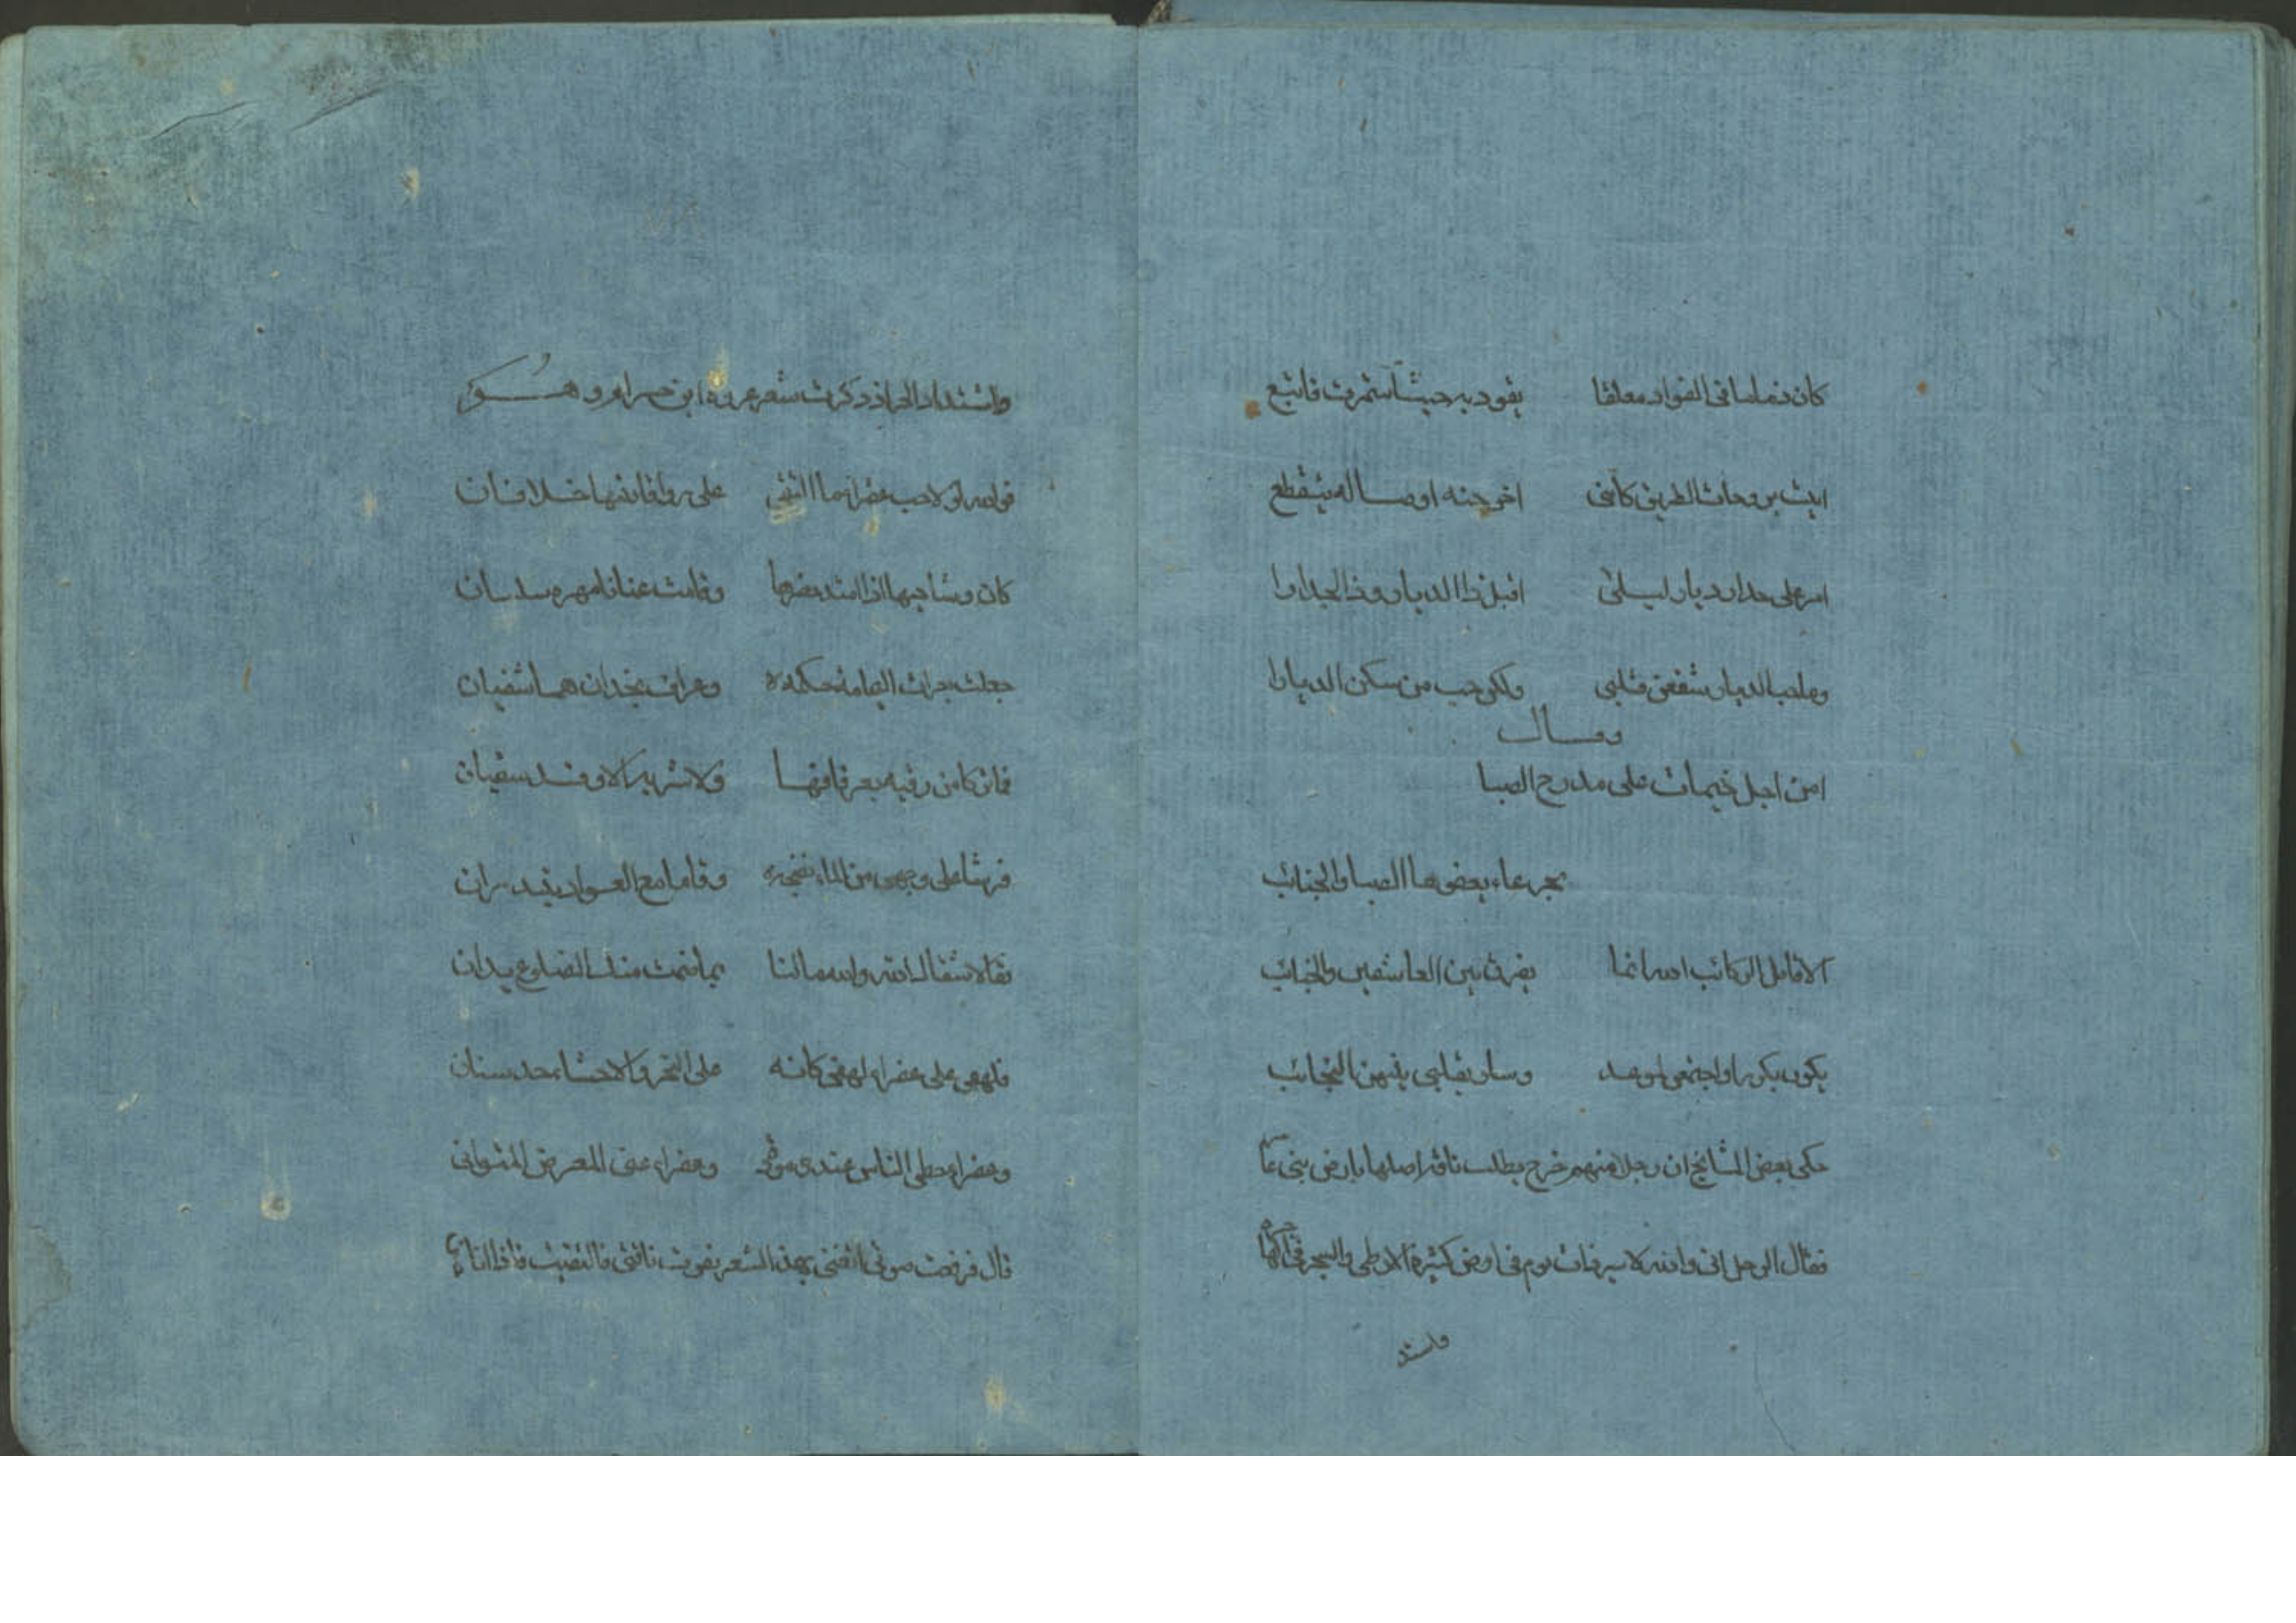 كان زماما فى الفواد معلقا يقود به حيث استمرت فاتبع
ابيت بروحات الطريق كاننى اخو جنه اوصاله يتقطع
امر على جدار ديار ليلى اقبل ذا الديار وذا الجدارا
وما حب الديار شغفن قلبى ولكن حب من سكن الديارا
وقال
امن اجل خيمات على مدرج الصبا
بجرعاء يعفوها الصبا والجنائب
الا قاتل الركائب انما يفرق بين العاشقين والجنائب
بكرن بكورا واجتمعن لموعد وسار بقلبى بينهن النجائب
حكى بعض المشايخ ان رجلا منهم خرج يطلب ناقه اضلها بارض بنى
فقال الرجل انى والله لاسير ذات يوم فى ارض كثيرة الارطى والسجر
واشتداد الحر اذ ذكرت شعر عروة ابن حرام وهو
فوالله لولا حب عفراء ما التقى على رواقا بيتها خلافان
كان وشاحيها اذا امتد وقامت عنانا مهره سلسان
جعلت لعراف اليمامة حكمه وعراف نجد ان هما شفيان
فما تركا من رقيه يعرفانها ولا شربه الا وقد سقيان
فرشا على وجهى من الماء وقاما مع العواد يبتدران
فقالا شفاك الله والله مالنا بما ضمت منك الضلوع يدان
فلهفى على عفراء لهفى كانه على النحر والاحشاء حد سنان
وعفراء احظى الناس عندى مودة وعفراء عنى المعرض المتوانى
قال فرفعت صوتى اتغنى بهذا الشعر ناقتى فالتفيت فاذا انا